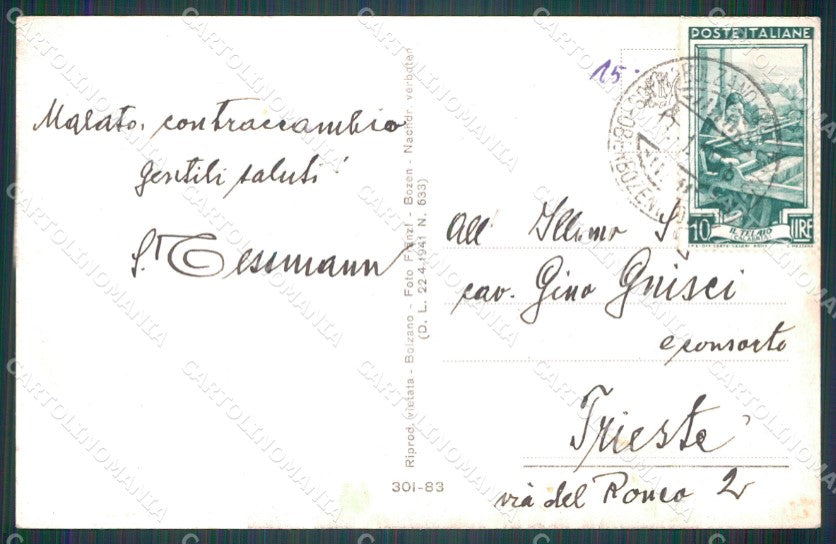 Malato, contraccambio
gentili saluti!
S. Tessmann
Riprod. vietata - Bolzano - Foto Fränzl - Bozen - Nachdr. verboten
(D. L. 22.4.1941 N. 633)
301-83
15.
POSTE ITALIANE
10 LIRE
IL TELAIO
All' Illmo S
cav. Gino Gnisci
e consorte
Trieste
via del Ronco 2
CARTOLINOMANIA